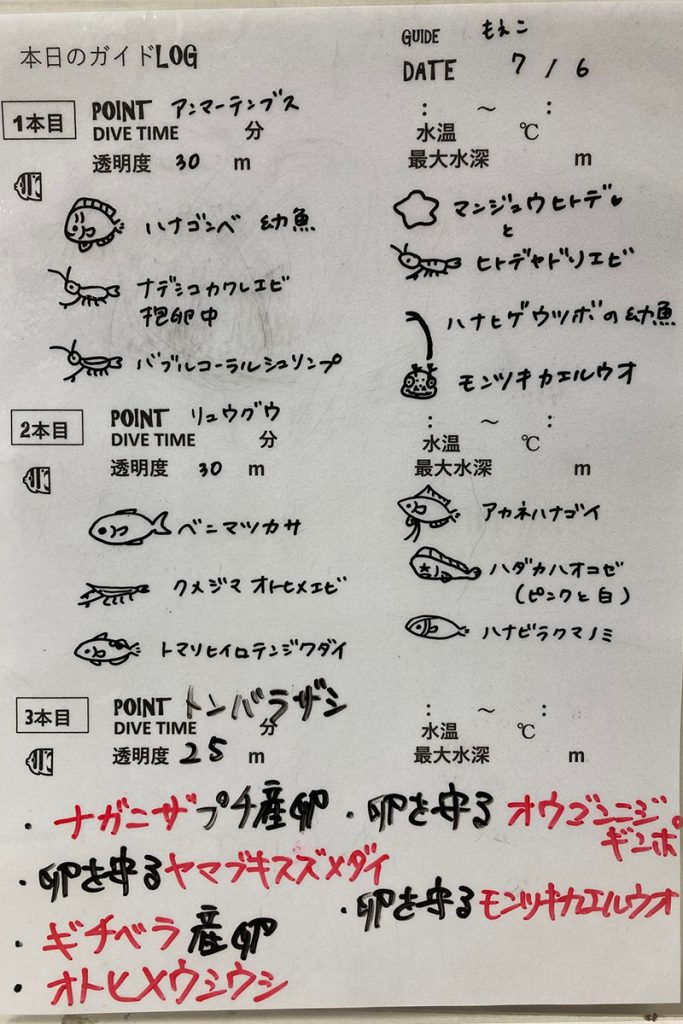 本日のガイドLOG
GUIDE もえこ
DATE 7 / 6
1本目
POINT アンマーテンブス
DIVE TIME 分
透明度 30 m
: ～ :
水温 ℃
最大水深 m
ハナゴンベ 幼魚
ナデシコカクレエビ
抱卵中
バブルコーラルシュリンプ
マンジュウヒトデ♥
と
ヒトデヤドリエビ
ハナヒゲウツボの幼魚
モンツキカエルウオ
2本目
POINT リュウグウ
DIVE TIME 分
透明度 30 m
: ～ :
水温 ℃
最大水深 m
ベニマツカサ
クメジマオトヒメエビ
トマリヒイロテンジクダイ
アカネハナゴイ
ハダカハオコゼ
(ピンクと白)
ハナビラクマノミ
3本目
POINT トンバラザシ
DIVE TIME 分
透明度 25 m
: ～ :
水温 ℃
最大水深 m
・ナガニザプチ産卵
・卵を守るヤマブキスズメダイ
・ギチベラ産卵
・オトヒメウミウシ
・卵を守るオウゴンニジ
ギンポ
・卵を守るモンツキカエルウオ